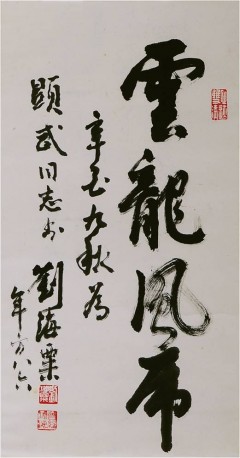 雲龍風虎
辛酉九秋為
顯武同志书
劉海粟
年方八六